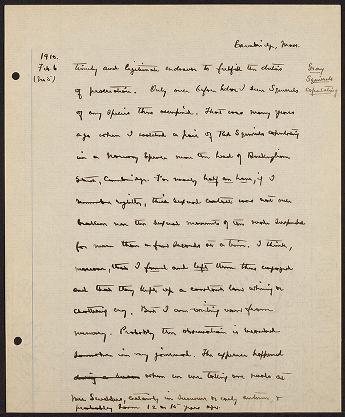 Cambridge, Mass.
1910.
Feb 6
(No 2)
Gray
Squirrels
copulating
timely and legitimate endeavor to fulfill the duties
of procreation. Only once before have I seen Squirrels
of any species thus occupied. That was many years
ago when I watched a pair of Red Squirrels copulating
in a Norway Spruce near the head of Buckingham
Street, Cambridge. For nearly half an hour, if I
remember rightly, this sexual contact was not once
broken nor the sexual movements of the male suspended
for more than a few seconds at a time. I think,
moreover, that I found and left them thus engaged
and that they kept up a constant low whining or
chattering cry. But I am writing now from
memory. Probably the observation is recorded
somewhere in my journal. The experience happened
when we were taking our meals at
Mrs Scudder's, certainly in summer or early autumn &
probably from 12 to 15 years ago.